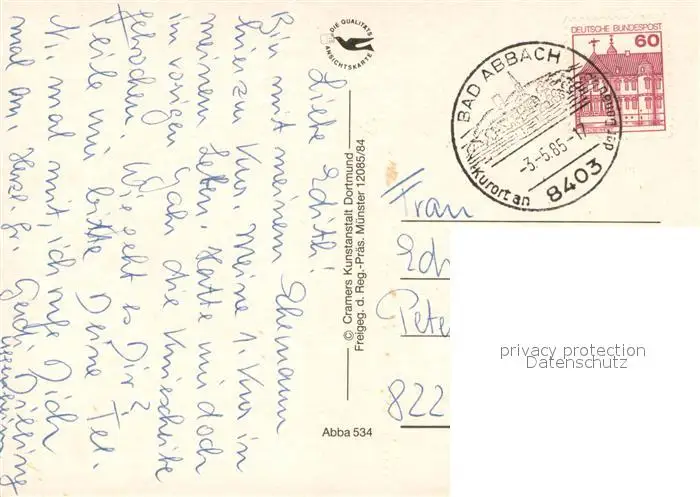 Liebe Edith!
Bin mit meinem Ehemann
hier zur Kur. Meine 1. Kur in
meinem Leben. Hatte mir doch
im vorigen Jahr die Kniescheibe
gebrochen. Wie geht es Dir?
Teile mir bitte Deine Tel.
Nr. mal mit, ich rufe Dich
mal an. Herzl. Gr.
DIE QUALITÄTS
ANSICHTSKARTE
© Cramers Kunstanstalt Dortmund
Freigeg. d. Reg.-Präs. Münster 12085/84
Abba 534
DEUTSCHE BUNDESPOST
60
BAD ABBACH
-3.-5.85-
8403
Kurort an der Donau
Frau
Ed
Pete
822
privacy protection
Datenschutz